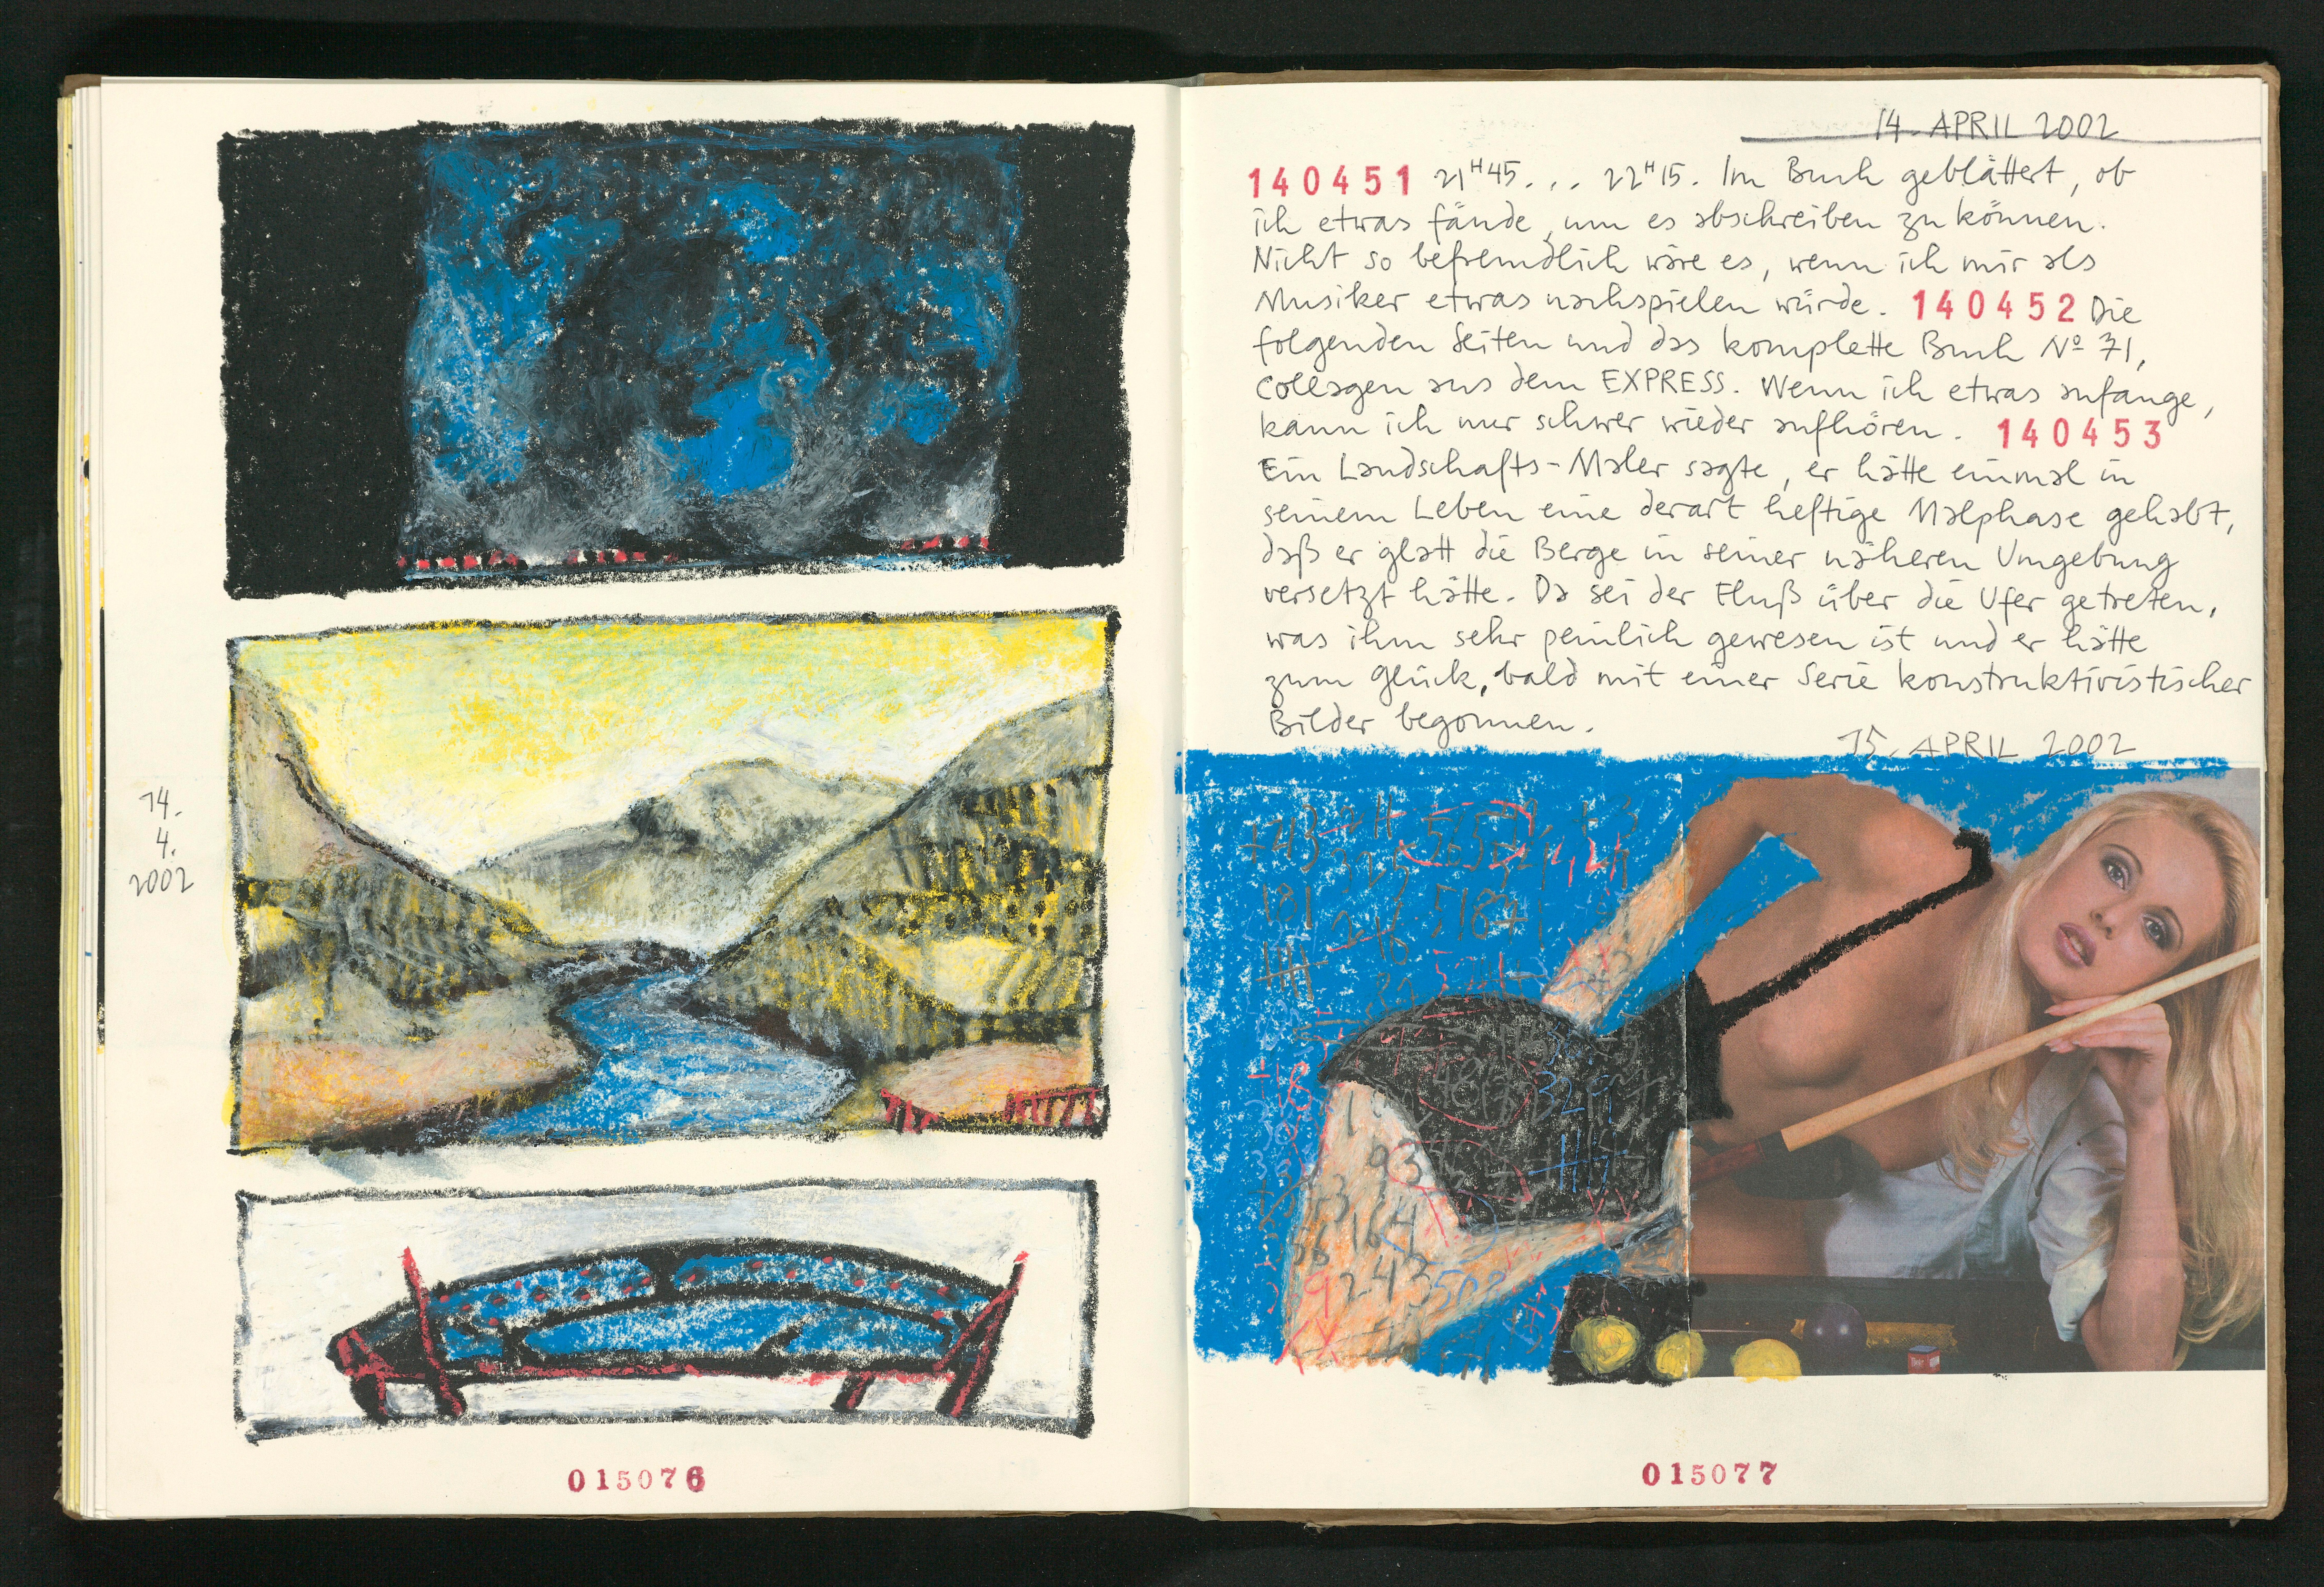 14.
4.
2002
015076
14. APRIL 2002
140451 21H45... 22H15. Im Buch geblättert, ob
ich etwas fände, um es abschreiben zu können.
Nicht so befremdlich wäre es, wenn ich mir als
Musiker etwas nachspielen würde. 140452 Die
folgenden Seiten und das komplette Buch Nº 71,
Collagen aus dem EXPRESS. Wenn ich etwas anfange,
kann ich nur schwer wieder aufhören. 140453
Ein Landschafts-Maler sagte, er hätte einmal in
seinem Leben eine derart heftige Malphase gehabt,
daß er glatt die Berge in seiner näheren Umgebung
versetzt hätte. Da sei der Fluß über die Ufer getreten,
was ihm sehr peinlich gewesen ist und er hätte
zum Glück, bald mit einer Serie konstruktivistischer
Bilder begonnen.
15. APRIL 2002
181
51871
93
9243
015077